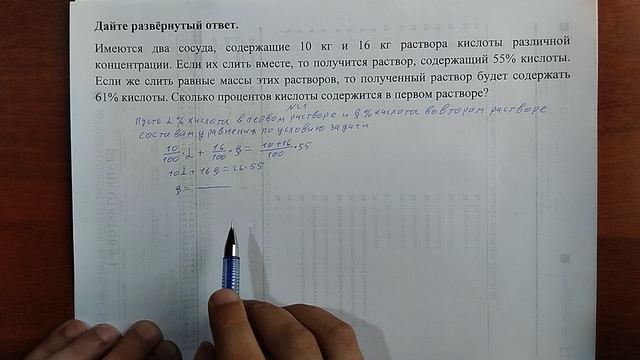 Дайте развёрнутый ответ.
Имеются два сосуда, содержащие 10 кг и 16 кг раствора кислоты различной
концентрации. Если их слить вместе, то получится раствор, содержащий 55% кислоты.
Если же слить равные массы этих растворов, то полученный раствор будет содержать
61% кислоты. Сколько процентов кислоты содержится в первом растворе?
№21
Пусть L% кислота в первом растворе и g% кислота во втором растворе
составим уравнения по условию задачи
10/100 · L + 16/100 · g = 10+16/100 · 55
10L + 16g = 26·55
g =